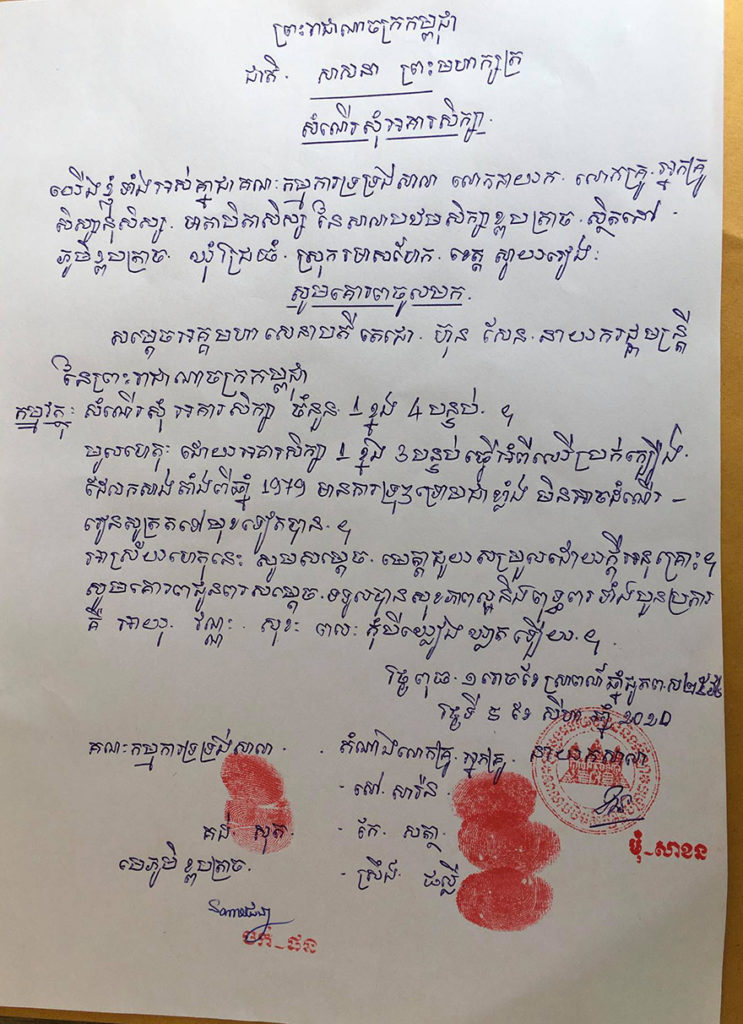 ព្រះរាជាណាចក្រកម្ពុជា
ជាតិ សាសនា ព្រះមហាក្សត្រ
សំណើរសុំអគារសិក្សា
យើងខ្ញុំទាំងអស់គ្នាជាគណៈកម្មការទ្រទ្រង់សាលា លោកនាយក លោកគ្រូ អ្នកគ្រូ
សិស្សានុសិស្ស មាតាបិតាសិស្ស នៃសាលាបឋមសិក្សាខ្ពបត្រាច ស្ថិតនៅ
ភូមិខ្ពបត្រាច ឃុំជ្រៃធំ ស្រុករមាសហែក ខេត្ត ស្វាយរៀង
សូមគោរពចូលមក
សម្តេចអគ្គមហាសេនាបតី តេជោ ហ៊ុន សែន នាយករដ្ឋមន្ត្រី
នៃព្រះរាជាណាចក្រកម្ពុជា
កម្មវត្ថុ សំណើរសុំ អគារសិក្សា ចំនួន 1 ខ្នង 4 បន្ទប់ ។
មូលហេតុ ដោយអគារសិក្សា 1 ខ្នង 3 បន្ទប់ ធ្វើអំពីឈើប្រក់ក្បឿង
ដែលកសាងតាំងពីឆ្នាំ 1979 មានការទ្រុឌទ្រោមជាខ្លាំង មិនអាចដំណើរ –
រៀនសូត្រតទៅមុខទៀតបាន ។
អាស្រ័យហេតុនេះ សូមសម្តេច មេត្តាជួយសម្រួលដោយក្តីអនុគ្រោះ ។
សូមគោរពជូនពរសម្តេច ទទួលបានសុខភាពល្អនិងពុទ្ធពរ ទាំងបួនប្រការ
គឺ អាយុ វណ្ណៈ សុខៈ ពលៈ កុំបីឃ្លៀងឃ្លាតឡើយ ។
ថ្ងៃពុធ ១រោចខែ ស្រាពណ៍ ឆ្នាំជូត ព.ស ២៥៦៤
ថ្ងៃទី 5 ខែ សីហា ឆ្នាំ 2020
គណៈកម្មការទ្រទ្រង់សាលា តំណាងលោកគ្រូ អ្នកគ្រូ នាយកសាលា
- សៅ សារ៉ន
គង់ សុត - កែ សត្ថា
ម៉ុំ-សាខន
មេភូមិ ខ្ពបត្រាច - ស្រឹង ផល្លី
មក់-ផន